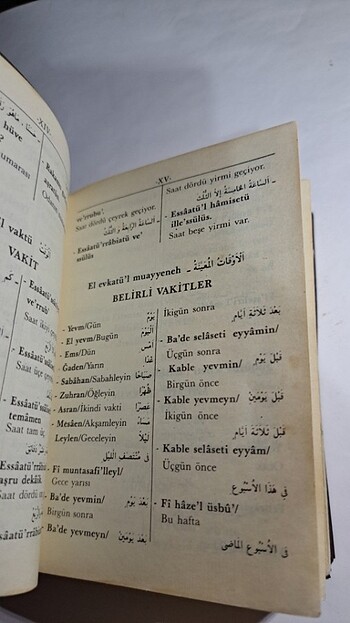 -XIV-
hüve
?
umarası
'l vaktü
VAKİT
temâmen
Saat tam üç
-XV-
ve'rrubu';
Saat dördü çeyrek geçiyor.
اَلسَّاعَةُ الرَّابِعَةُ وَ الثُّلُثُ
- Essâatü'rrâbiatü ve'
sülüs
Saat dördü yirmi geçiyor.
- اَلسَّاعَةُ الْخَامِسَةُ اِلاَّ الثُّلُثُ
- Essâatü'l hâmisetü
ille'sülüs.
Saat beşe yirmi var.
El evkatü'l muayyeneh - اَلْاَوْقَاتُ الْمُعَيَّنَةُ
BELİRLİ VAKİTLER
- Yevm/Gün يَوْمٌ
- El yevm/Bugün اَلْيَوْمَ
- Ems/Dün اَمْسِ
- Ğaden/Yarın غَدًا
- Sabâhan/Sabahleyin صَبَاحًا
- Zuhran/Öğleyin ظُهْرًا
- Asran/İkindi vakti عَصْرًا
- Mesâen/Akşamleyin مَسَاءً
Leylen/Geceleyin لَيْلًا
فِي مُنْتَصَفِ اللَّيْلِ
Fî muntasafi'lleyl/
Gece yarısı
- Ba'de yevmin/ بَعْدَ يَوْمٍ
Birgün sonra
- Ba'de yevmeyn/ بَعْدَ يَوْمَيْنِ
İkigün sonra
بَعْدَ ثَلَاثَةِ اَيَّامٍ
- Ba'de selâseti eyyâmin/
Üçgün sonra
- Kable yevmin/ قَبْلَ يَوْمٍ
Birgün önce
- Kable yevmeyn/ قَبْلَ يَوْمَيْنِ
İkigün önce
قَبْلَ ثَلَاثَةِ اَيَّامٍ
- Kable selâseti eyyâm/
Üçgün önce
فِي هٰذَا الْاُسْبُوعِ
- Fî hâze'l üsbû'/
Bu hafta
فِي الْاُسْبُوعِ الْمَاضِي